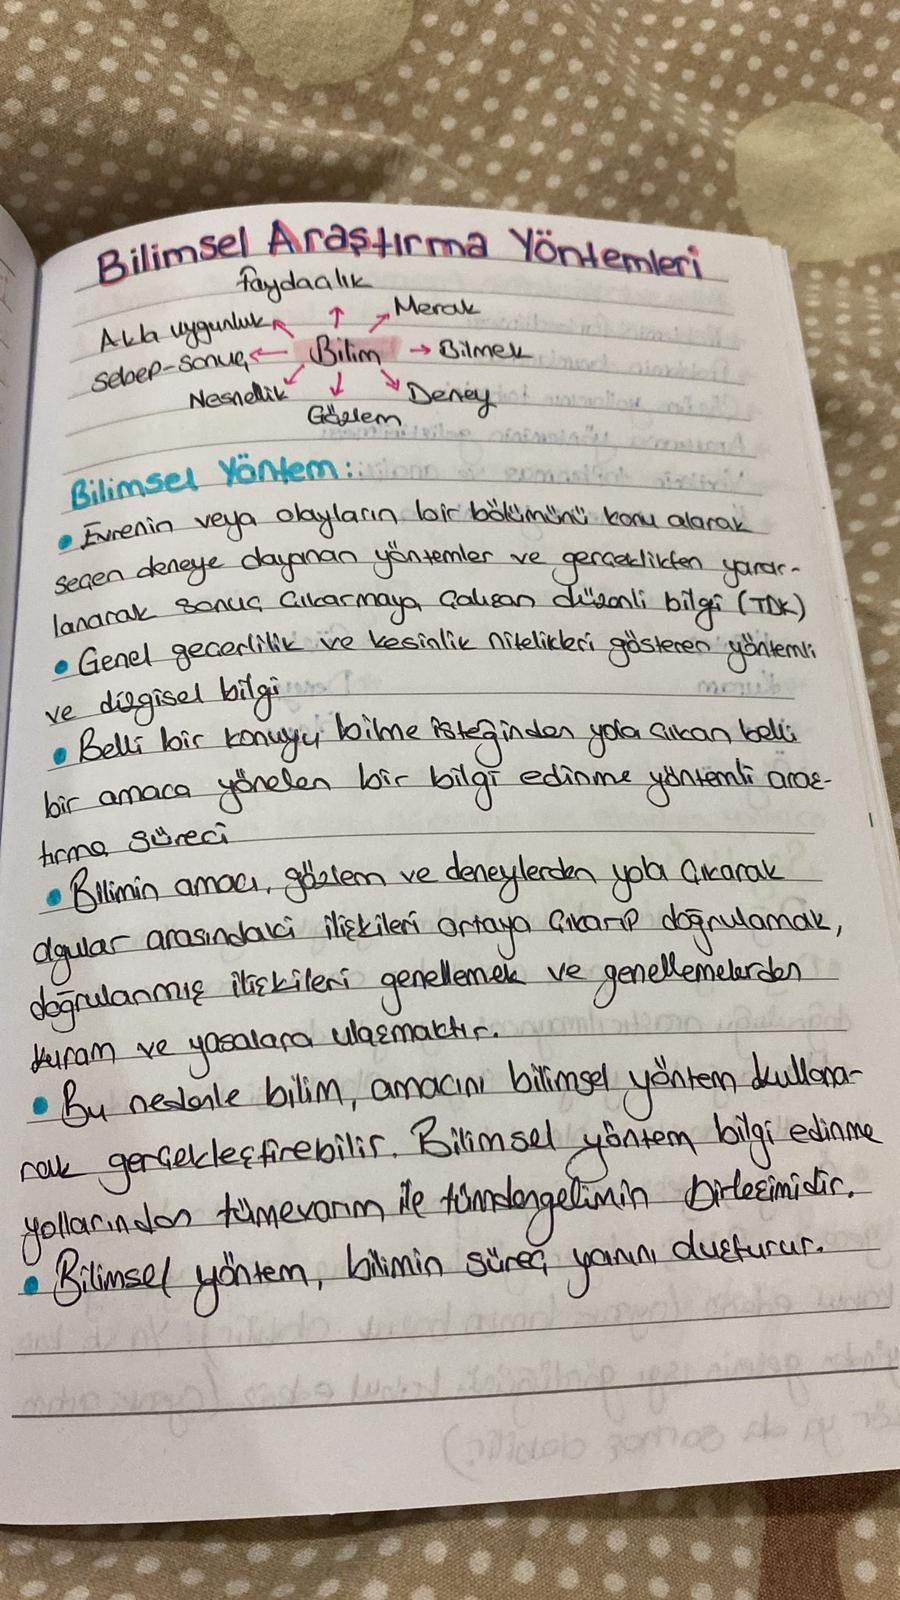 Bilimsel Araştırma Yöntemleri
faydacılık
Merak
Akla uygunluk
Bilim
Bilmek
sebep-sonuç
Nesnellik
Deney
Gözlem
Bilimsel Yöntem:
• Evrenin veya olayların bir bölümünü konu alarak
seçen deneye dayanan yöntemler ve gerçeklikten yarar-
lanarak sonuç çıkarmaya çalışan düzenli bilgi (TDK)
• Genel geçerlilik ve kesinlik nitelikleri gösteren yöntemli
ve dizgisel bilgi
• Belli bir konuyu bilme isteğinden yola çıkan belli
bir amaca yönelen bir bilgi edinme yöntemli araş-
tırma süreci
• Bilimin amacı, gözlem ve deneylerden yola çıkarak
olgular arasındaki ilişkileri ortaya çıkarıp doğrulamak,
doğrulanmış ilişkileri genellemek ve genellemelerden
kuram ve yasalara ulaşmaktır.
• Bu nedenle bilim, amacını bilimsel yöntem kullana-
rak gerçekleştirebilir. Bilimsel yöntem bilgi edinme
yollarından tümevarım ile tümdengelimin birleşimidir.
• Bilimsel yöntem, bilimin süreç yanını oluşturur.